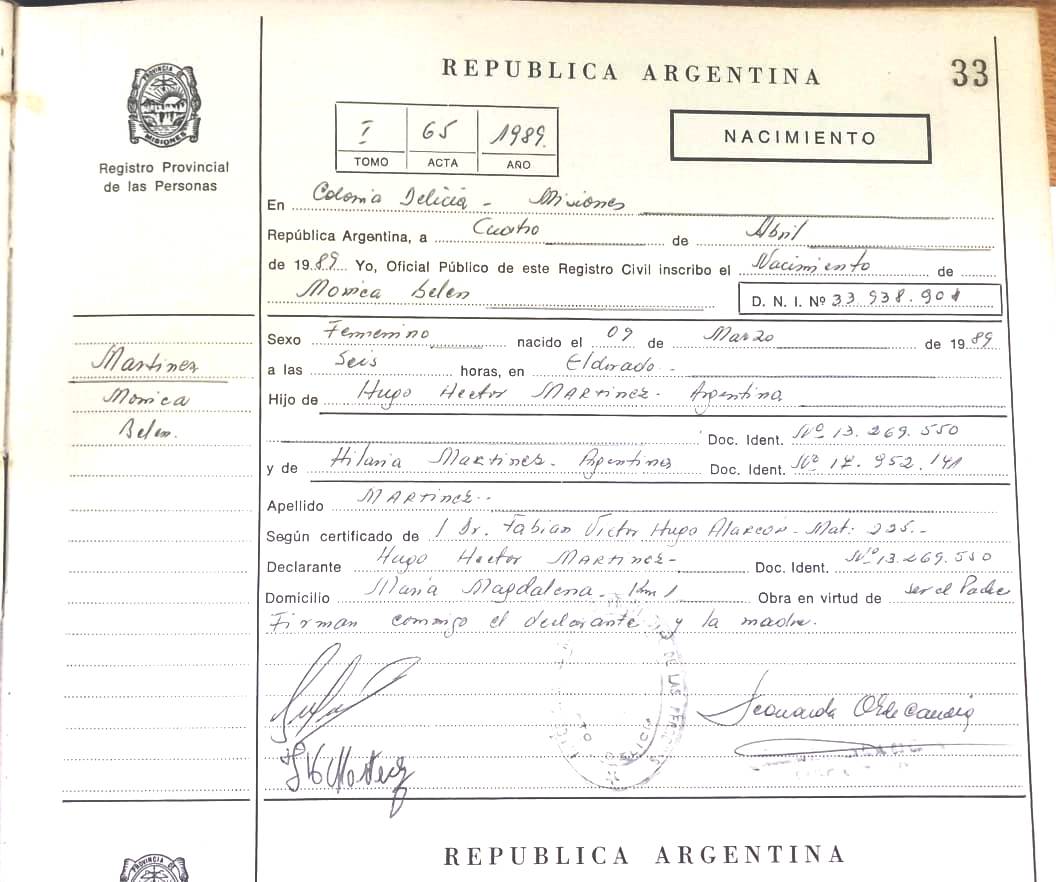 REPUBLICA ARGENTINA
33
PROVINCIA DE MISIONES
Registro Provincial
de las Personas
I 65 1989.
TOMO ACTA AÑO
NACIMIENTO
En Colonia Delicia - Misiones
República Argentina, a Cuatro de Abril
de 1989 Yo, Oficial Público de este Registro Civil inscribo el Nacimiento de
Monica Belen
D. N. I. Nº 33 938.901
Sexo Femenino nacido el 09 de Marzo de 1989
a las Seis horas, en Eldorado -
Hijo de Hugo Hector MARTINEZ - Argentina
Doc. Ident. Nº 13.269.550
y de Hilaria Martinez - Argentina Doc. Ident. Nº 17.952.141
Apellido MARTINEZ --
Según certificado de 1 Dr. Fabian Victor Hugo Alarcón - Mat: 225.-
Declarante Hugo Hector MARTINEZ - Doc. Ident. Nº 13.269.550
Domicilio Maria Magdalena - Km 1 Obra en virtud de ser el Padre
Firman conmigo el declarante y la madre.
Martinez
Monica
Belen.
DE LAS
REPUBLICA ARGENTINA
PROVINCIA